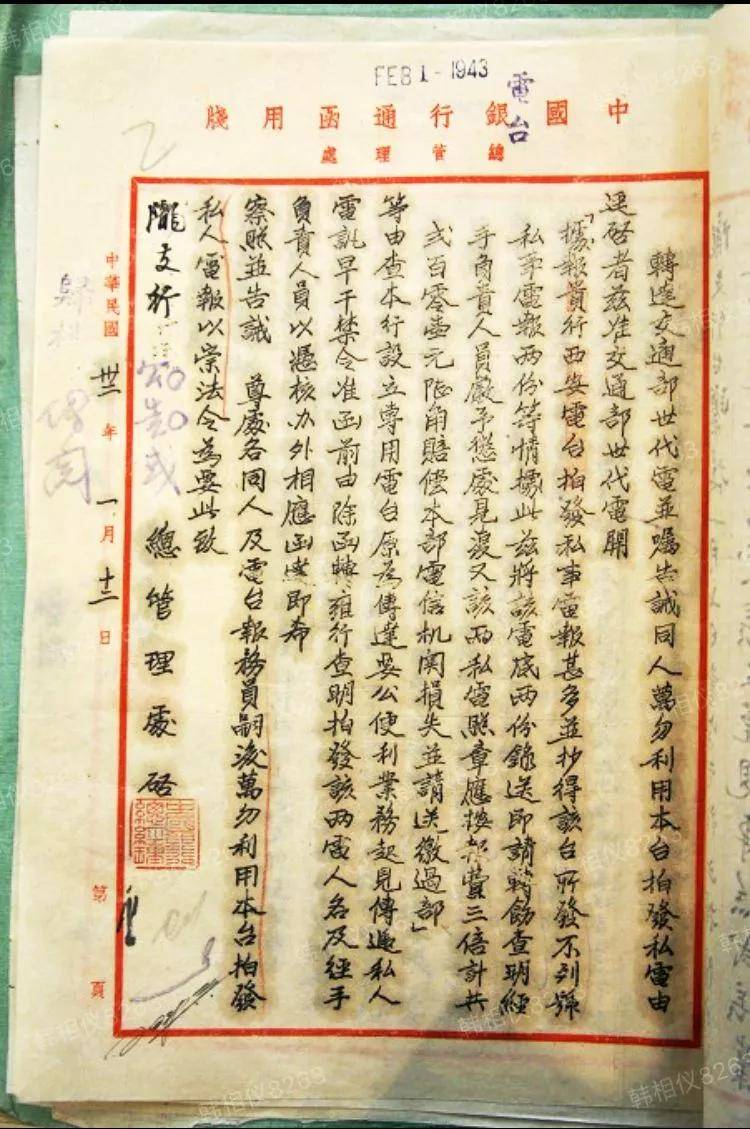 FEB 1 - 1943
電台
中國銀行通函用牋
總管理處
轉達交通部世代電並囑告誡同人萬勿利用本台拍發私電由
逕啓者兹准交通部世代電開
「據報貴行西安電台拍發私事電報甚多並抄得該台所發不列號
私事電報兩份等情據此兹將該電底兩份錄送即請轉飭查明經
手負責人員嚴予懲處見復又該兩私電照章應按報費三倍計共
弍百零壹元陸角賠償本部電信机関損失並請送繳過部」
等由查本行設立專用電台原為傳達要公便利業務起見傳遞私人
電訊早干禁令准函前由除函轉雍行查明拍發該兩電人名及經手
負責人員以憑核办外相應函達即希
察照並告誡　尊處各同人及電台報務員嗣後萬勿利用本台拍發
私人電報以崇法令為要此致
隴支行
總管理處啓
中華民國卅二年一月十二日
第　頁
韓相仪8269